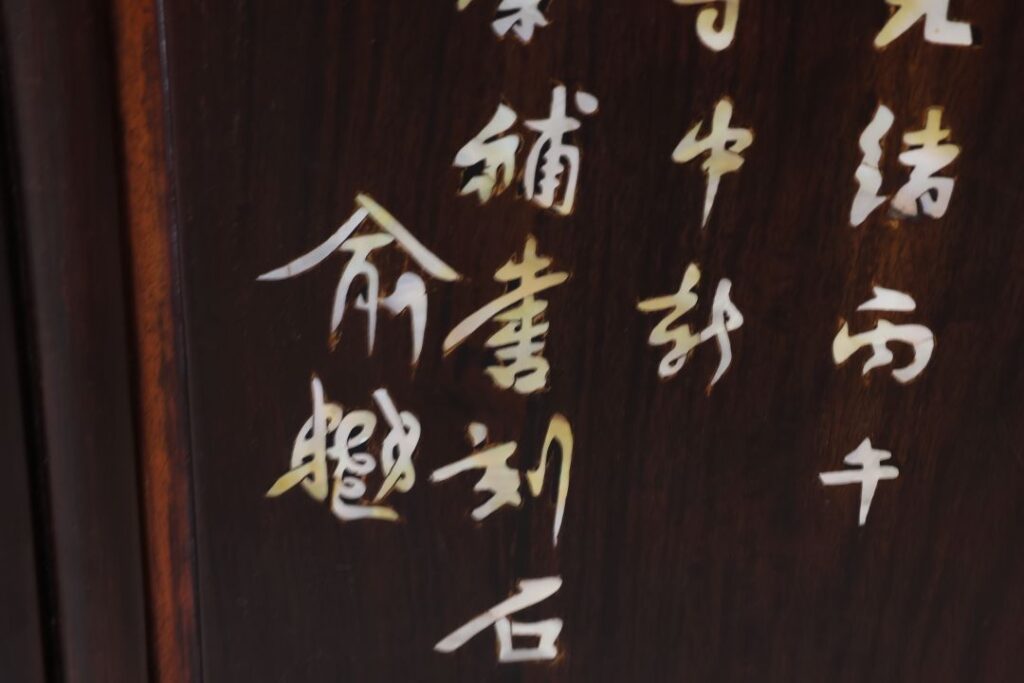 光緒丙午
寺中新
補書刻石
俞樾